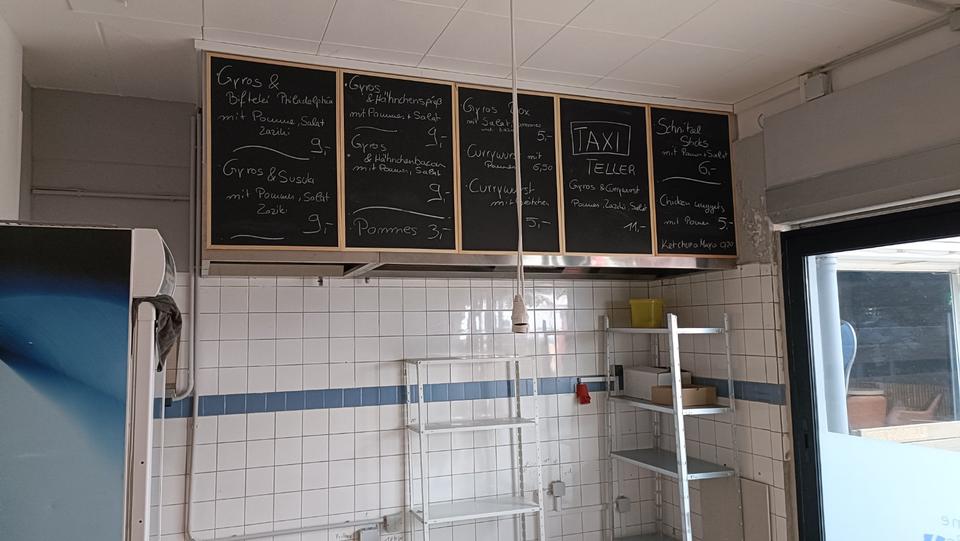 Gyros &
Bifteki Philadelphia
mit Pommes, Salat
Zaziki
9,-
Gyros & Susuk
mit Pommes, Salat
Zaziki
9,-
Gyros
& Hähnchenspieß
mit Pommes + Salat
9,-
Gyros
& Hähnchenbacon
mit Pommes, Salat
9,-
Pommes 3,-
Gyros Box
mit Salat, Pommes
5,-
Currywurst mit
Pommes 6,50
Currywurst
mit Brötchen
5,-
TAXI
TELLER
Gyros & Currywurst
Pommes, Zaziki, Salat
11,-
Schnitzel
Sticks
mit Pommes + Salat
6,-
Chicken Nuggets
mit Pommes 5,-
Ketchup o Mayo 0,70